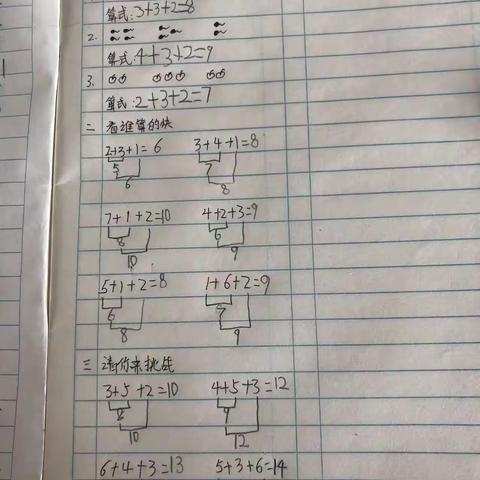 算式:3+3+2=8
2.
算式:4+3+2=9
3.
算式:2+3+2=7
二 看谁算的快
2+3+1=6 3+4+1=8
5 7
6 8
7+1+2=10 4+2+3=9
8 6
10 9
5+1+2=8 1+6+2=9
6 7
8 9
三 请你来挑战
3+5+2=10 4+5+3=12
8 9
10 12
6+4+3=13 5+3+6=14